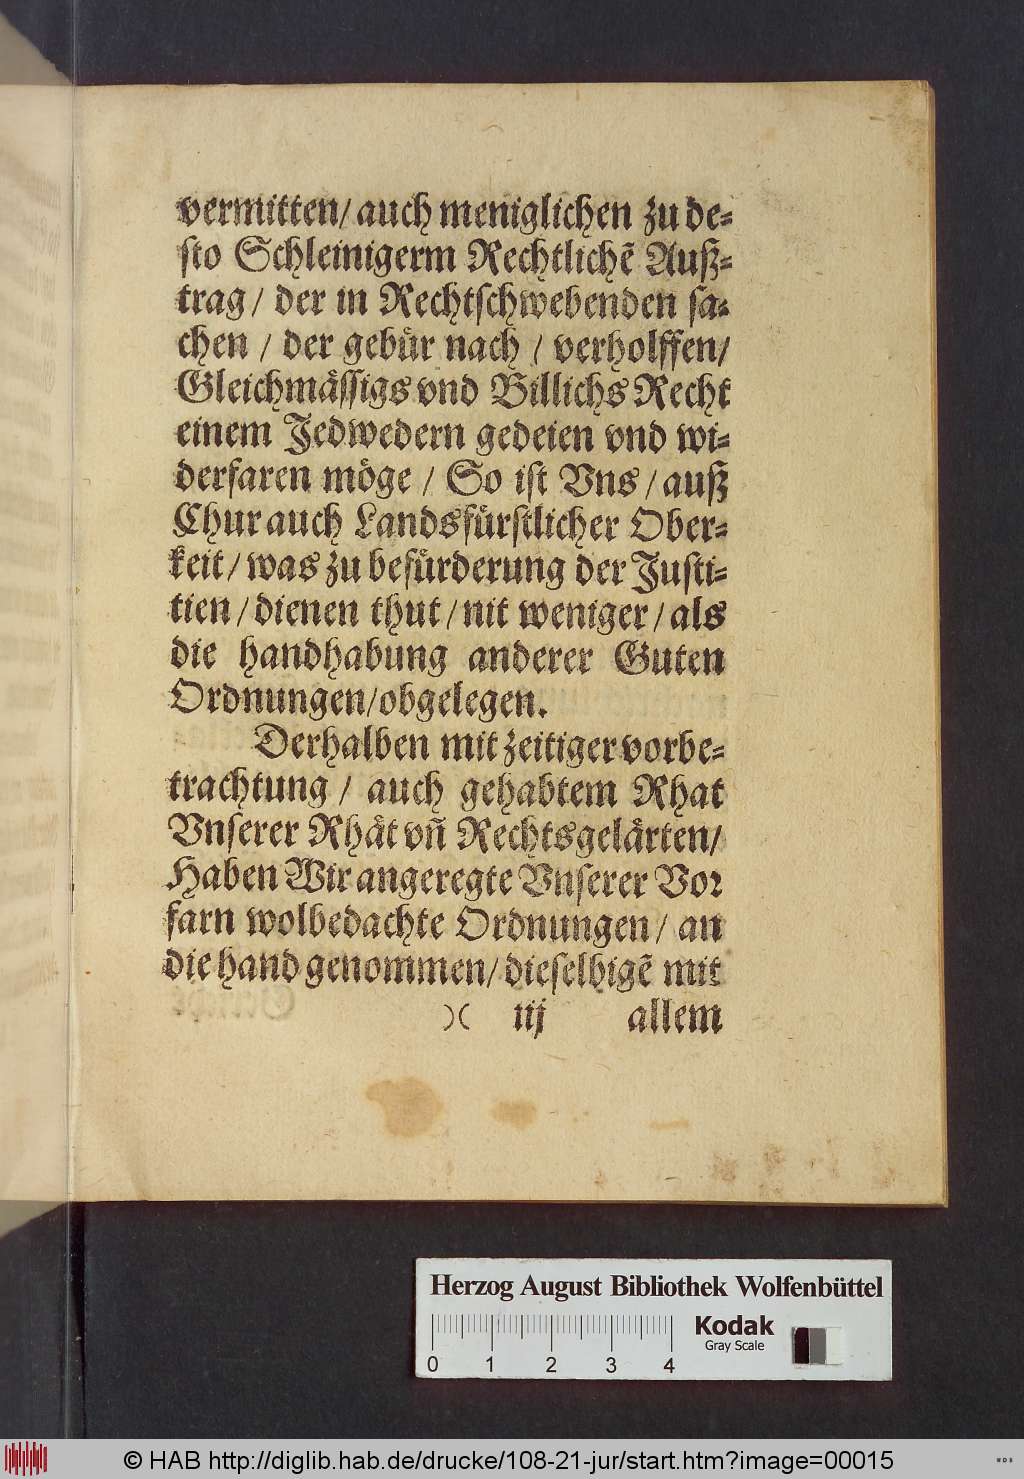 vermitten/ auch meniglichen zu de⸗
sto Schleinigerm Rechtlichẽ Auß⸗
trag/ der in Rechtschwebenden sa⸗
chen / der gebür nach / verholffen/
Gleichmässigs vnd Billichs Recht
einem Jedwedern gedeien vnd wi⸗
derfaren möge / So ist Vns / auß
Chur auch Landsfürstlicher Ober⸗
keit/ was zu befürderung der Justi⸗
tien / dienen thut / nit weniger / als
die handhabung anderer Guten
Ordnungen/obgelegen.
Derhalben mit zeitiger vorbe⸗
trachtung / auch gehabtem Rhat
Vnserer Rhät vñ Rechtsgelärten/
Haben Wir angeregte Vnserer Vor
farn wolbedachte Ordnungen/ an
die hand genommen/ dieselbigẽ mit
)( iij allem
Herzog August Bibliothek Wolfenbüttel
Kodak
Gray Scale
0 1 2 3 4
© HAB http://diglib.hab.de/drucke/108-21-jur/start.htm?image=00015